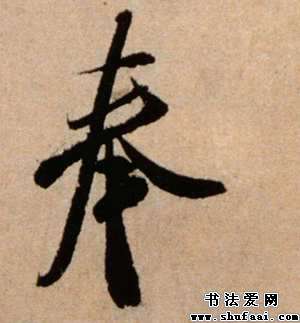 奉
书法爱网
www.shufaai.com